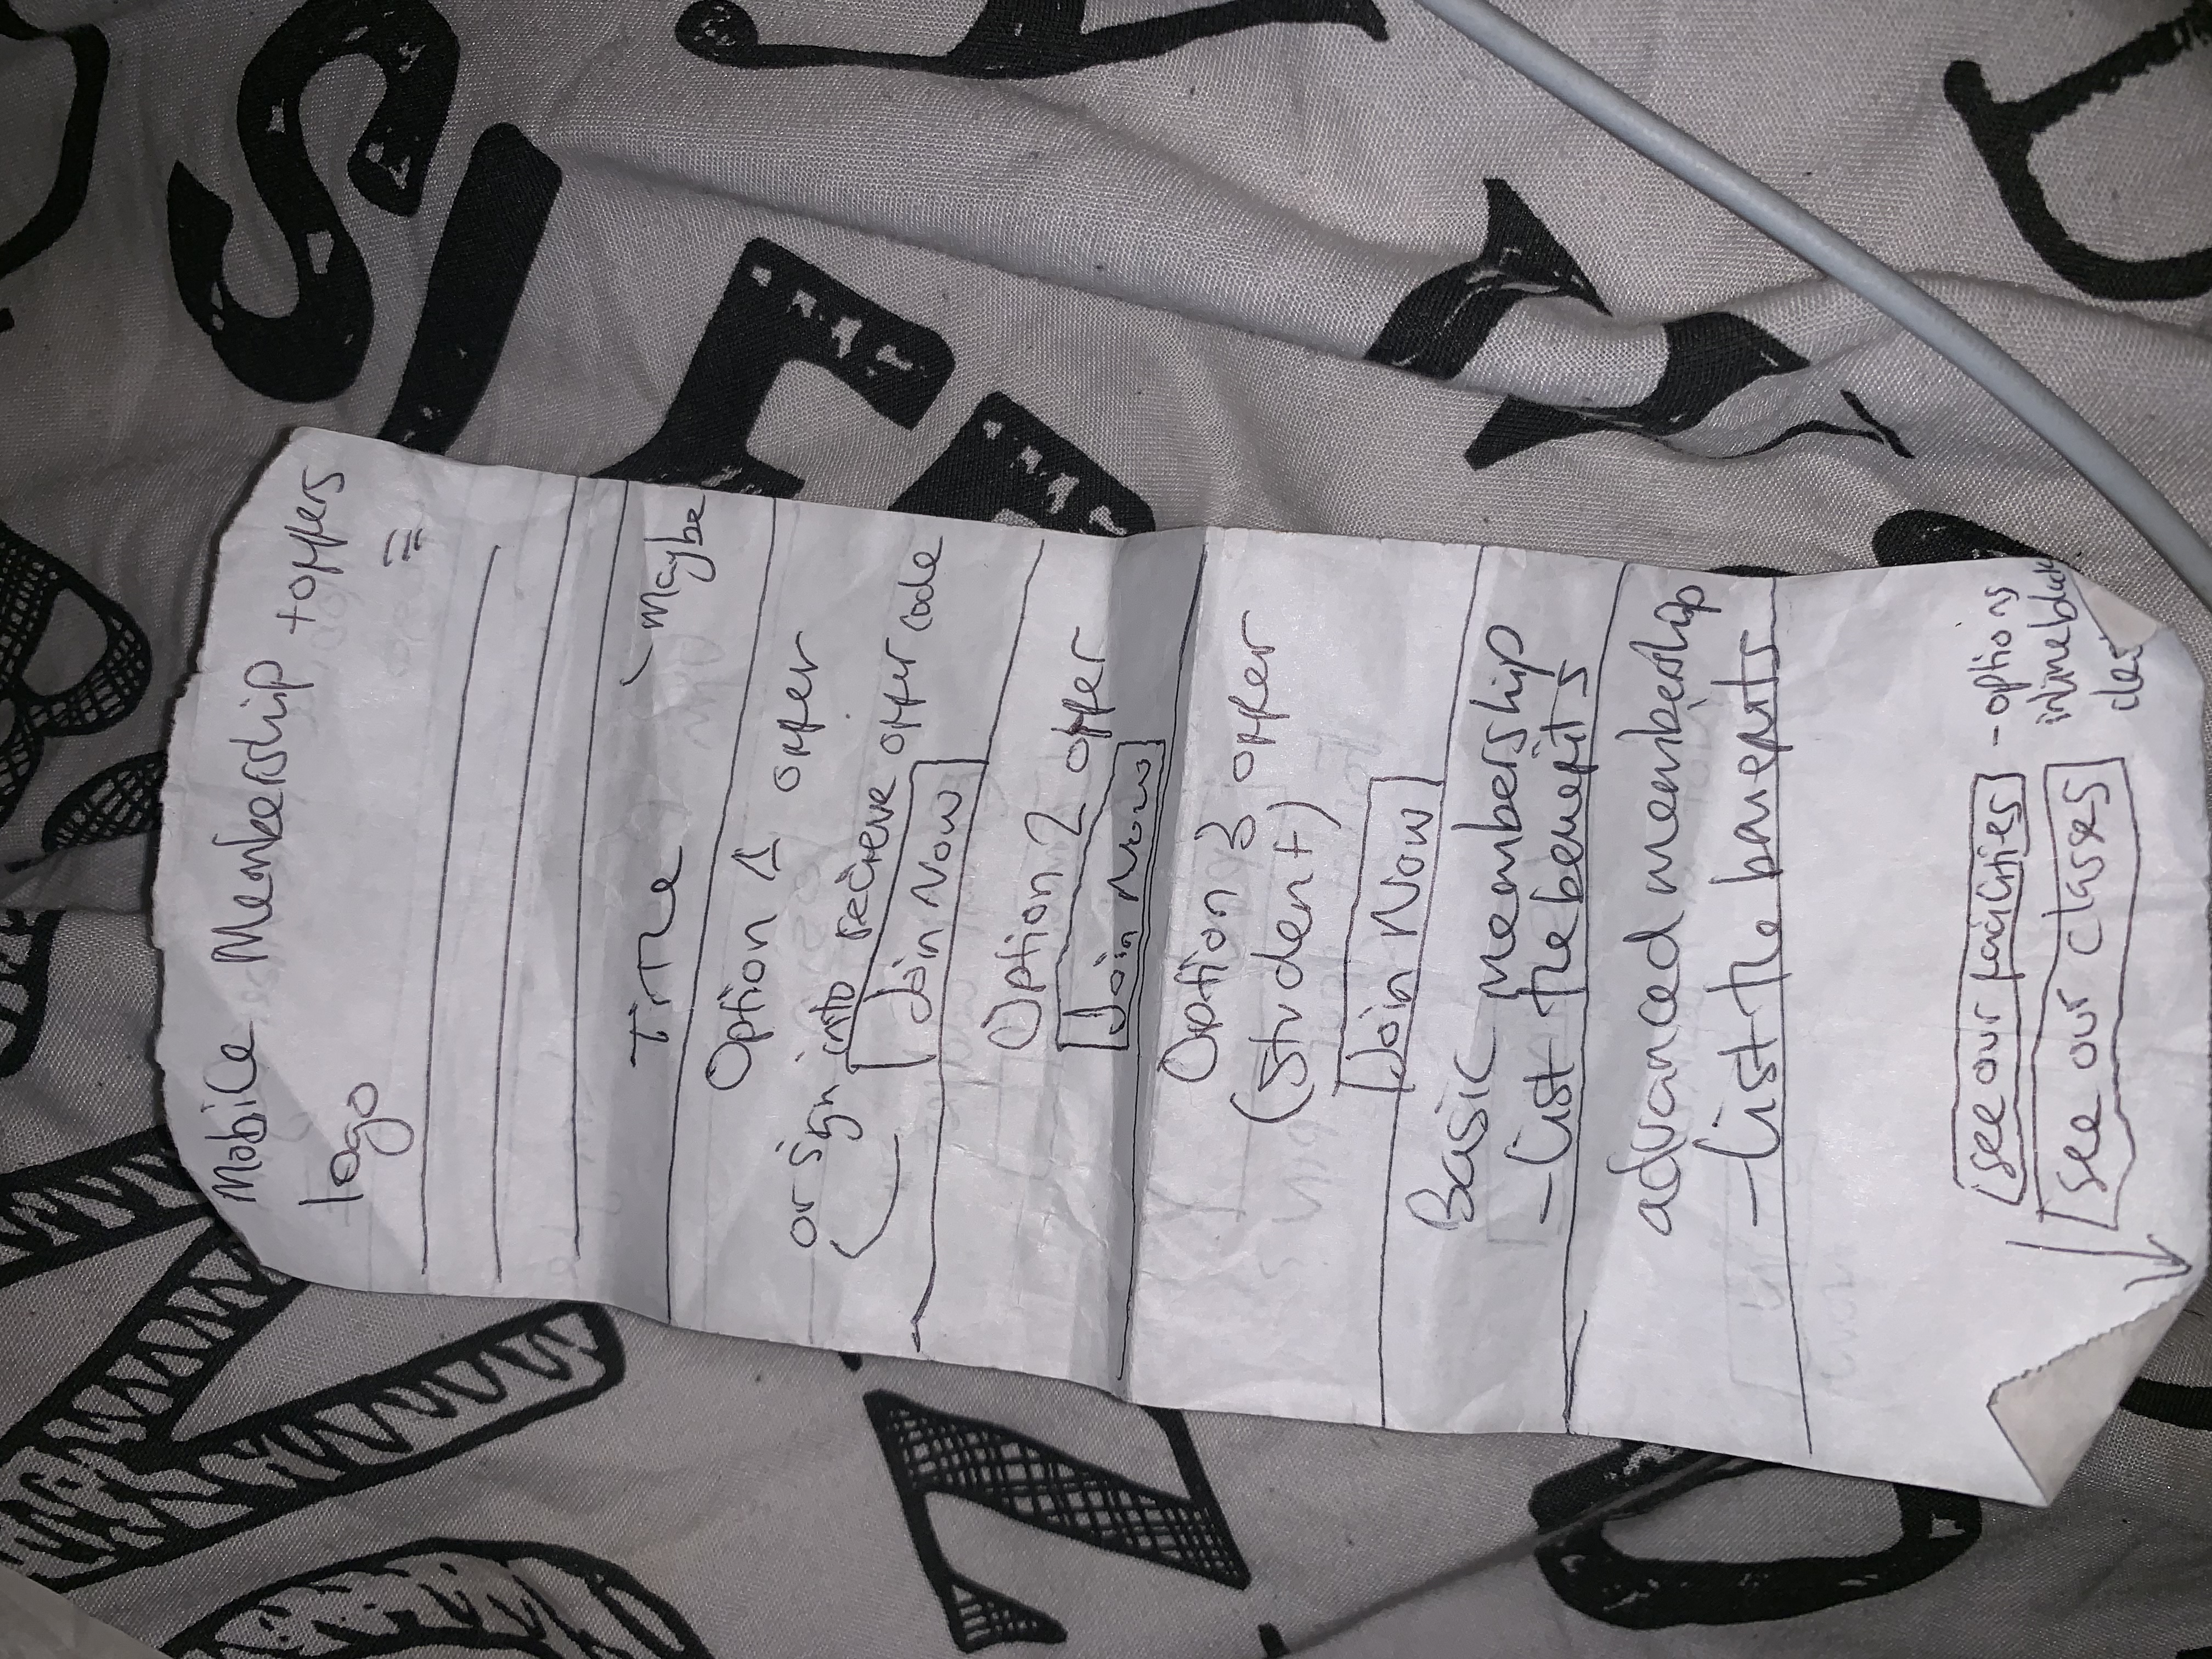 Mobile Membership + offers
logo
Title
maybe
Option 1 offer
or sign into recieve offer code
Join Now
Option 2 offer
Join Now
Option 3 offer
(student)
Join Now
Basic meembership
- List the benefits
advanced meembership
- List the banefits
see our facilities
- options
inline block
see our classes